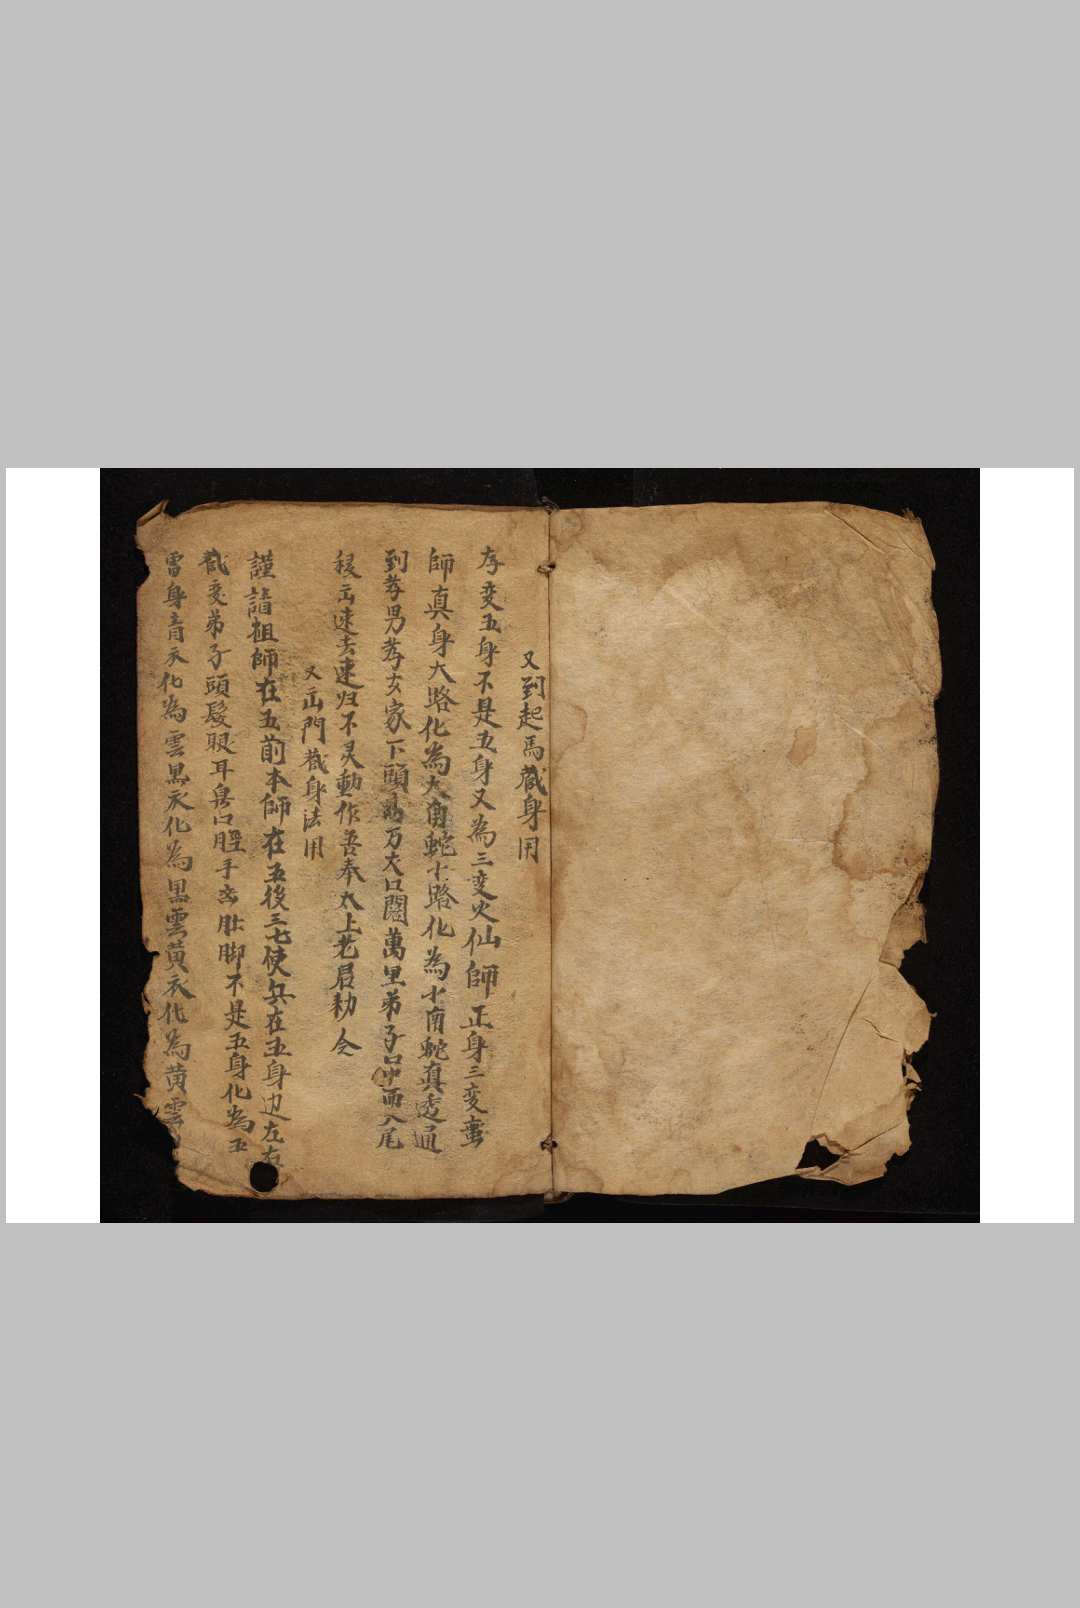 又到起馬藏身用
存变五身不是五身又為三变火仙師正身三变
師真身大路化為大南蛇小路化為小南蛇真通
到孝男孝女家下頭万大口闊萬里弟子口中而入尾
出速去速归不灵動作吾奉太上老君敕令
又出門藏身法用
謹請祖師在五前本師在五後三七使兵在五身边左右
藏变弟子頭髮眼耳鼻口手肚脚不是五身化為五
雷身青衣化為雲黑衣化為黒雲黃衣化為黄雲